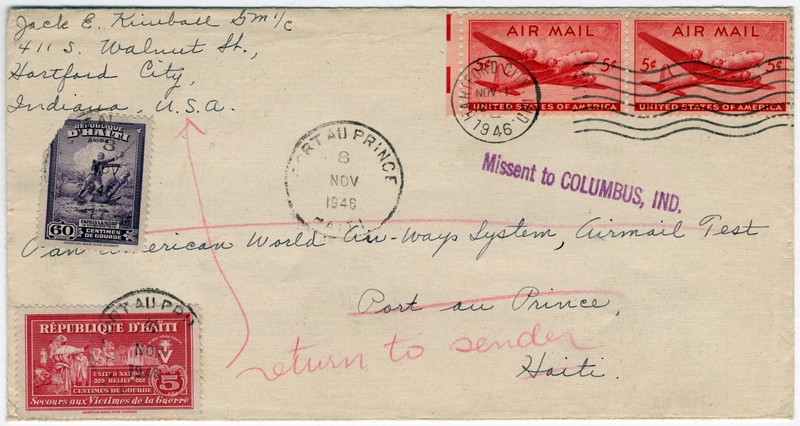 Jack E. Kimball Sm 1/c
411 S. Walnut St.,
Hartford City,
Indiana, U.S.A.
AIR MAIL
5¢ 5¢
UNITED STATES OF AMERICA
AIR MAIL
5¢ 5¢
UNITED STATES OF AMERICA
HARTFORD CITY, IND.
NOV 1
1946
RÉPUBLIQUE D'HAÏTI
AVION
8
NOV
1946
60
CENTIMES
DE GOURDE
PORT AU PRINCE
8
NOV
1946
HAITI
Missent to COLUMBUS, IND.
Pan American World Air-Ways System, Airmail Test
Port au Prince,
Haiti.
return to sender
PORT AU PRI
NOV
1946
RÉPUBLIQUE D'HAÏTI
UNITED NATIONS
RELIEF
V
5
CENTIMES DE GOURDE
Secours aux Victimes de la Guerre